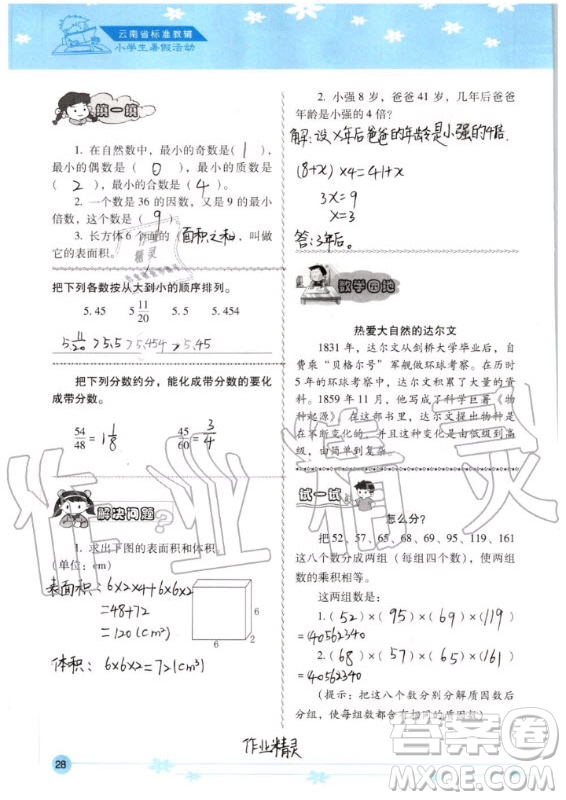 云南省标准教辅
小学生暑假活动
填一填
1. 在自然数中，最小的奇数是( 1 )，
最小的偶数是( 0 )，最小的质数是
( 2 )，最小的合数是( 4 )。
2. 一个数是 36 的因数，又是 9 的最小
倍数，这个数是( 9 )。
3. 长方体 6 个面的(面积之和)，叫做
它的表面积。
把下列各数按从大到小的顺序排列。
5.45 5 11/20 5.5 5.454
5 11/20 > 5.5 > 5.454 > 5.45
把下列分数约分，能化成带分数的要化
成带分数。
54/48 = 1 1/8 45/60 = 3/4
解决问题
1. 求出下图的表面积和体积。
(单位：cm)
表面积：6×2×4+6×6×2
=48+72
=120(cm²)
6
6
2
体积：6×6×2=72(cm³)
2. 小强 8 岁，爸爸 41 岁，几年后爸爸
年龄是小强的 4 倍？
解：设x年后爸爸的年龄是小强的4倍.
(8+x)×4=41+x
3x=9
x=3
答：3年后。
数学园地
热爱大自然的达尔文
1831 年，达尔文从剑桥大学毕业后，自
费乘“贝格尔号”军舰做环球考察。在历时
5 年的环球考察中，达尔文积累了大量的资
料。1859 年 11 月，他写成了科学巨著《物种
起源》。在这部书里，达尔文提出物种
在不断变化的，并且这种变化是由低级到高
级、由简单到复杂。
试一试
怎么分？
把 52、57、65、68、69、95、119、161
这八个数分成两组（每组四个数），使两组
数的乘积相等。
这两组数是：
1. ( 52 )×( 95 )×( 69 )×( 119 )
=40562340
2. ( 68 )×( 57 )×( 65 )×( 161 )
=40562340
(提示：把这八个数分别分解质因数后
分组，使每组都含有相同的质因数)
作业精灵
28
作业精灵
答案圈